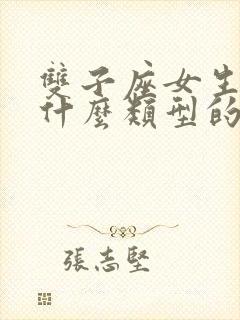 雙子座女生
什麼類型的
張志堅